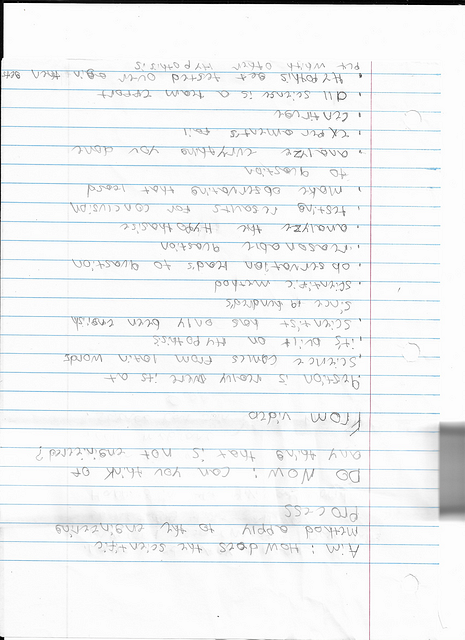 Aim: How does the scientific
method apply to the engineering
Process
DO NOW: can you think of
any thing that is not engineered?
From video
. qestion is really were its at
. Science comes from latin words
. it's built on Hypothsis
. Scientist has only been english
since 19 hundred's
. Scientific method
. observation lead's to question
. reasonable question
. analyze the Hypothasis
. testing results for conclusion
. make observating that leard
to question
. analyze everything you done
. experaments fail
. continue
. all science is a team effort
. Hypothsis get tested over again then get
put with other Hypothsis